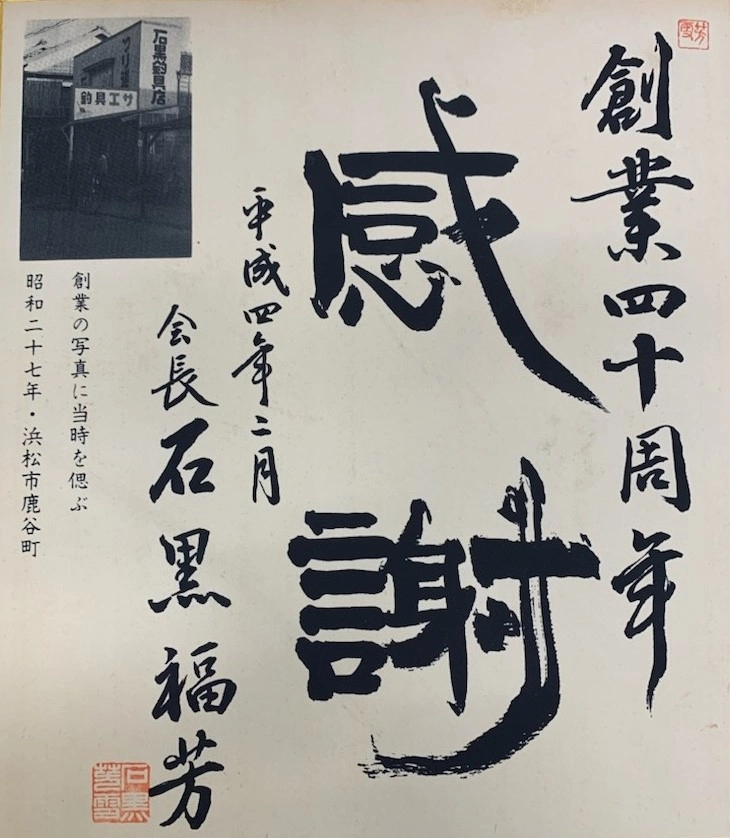 創業四十周年
感謝
平成四年二月
会長 石黒福芳
創業の写真に当時を偲ぶ
昭和二十七年・浜松市鹿谷町
石黒釣具店
ツリ道
釣具エサ
石黒